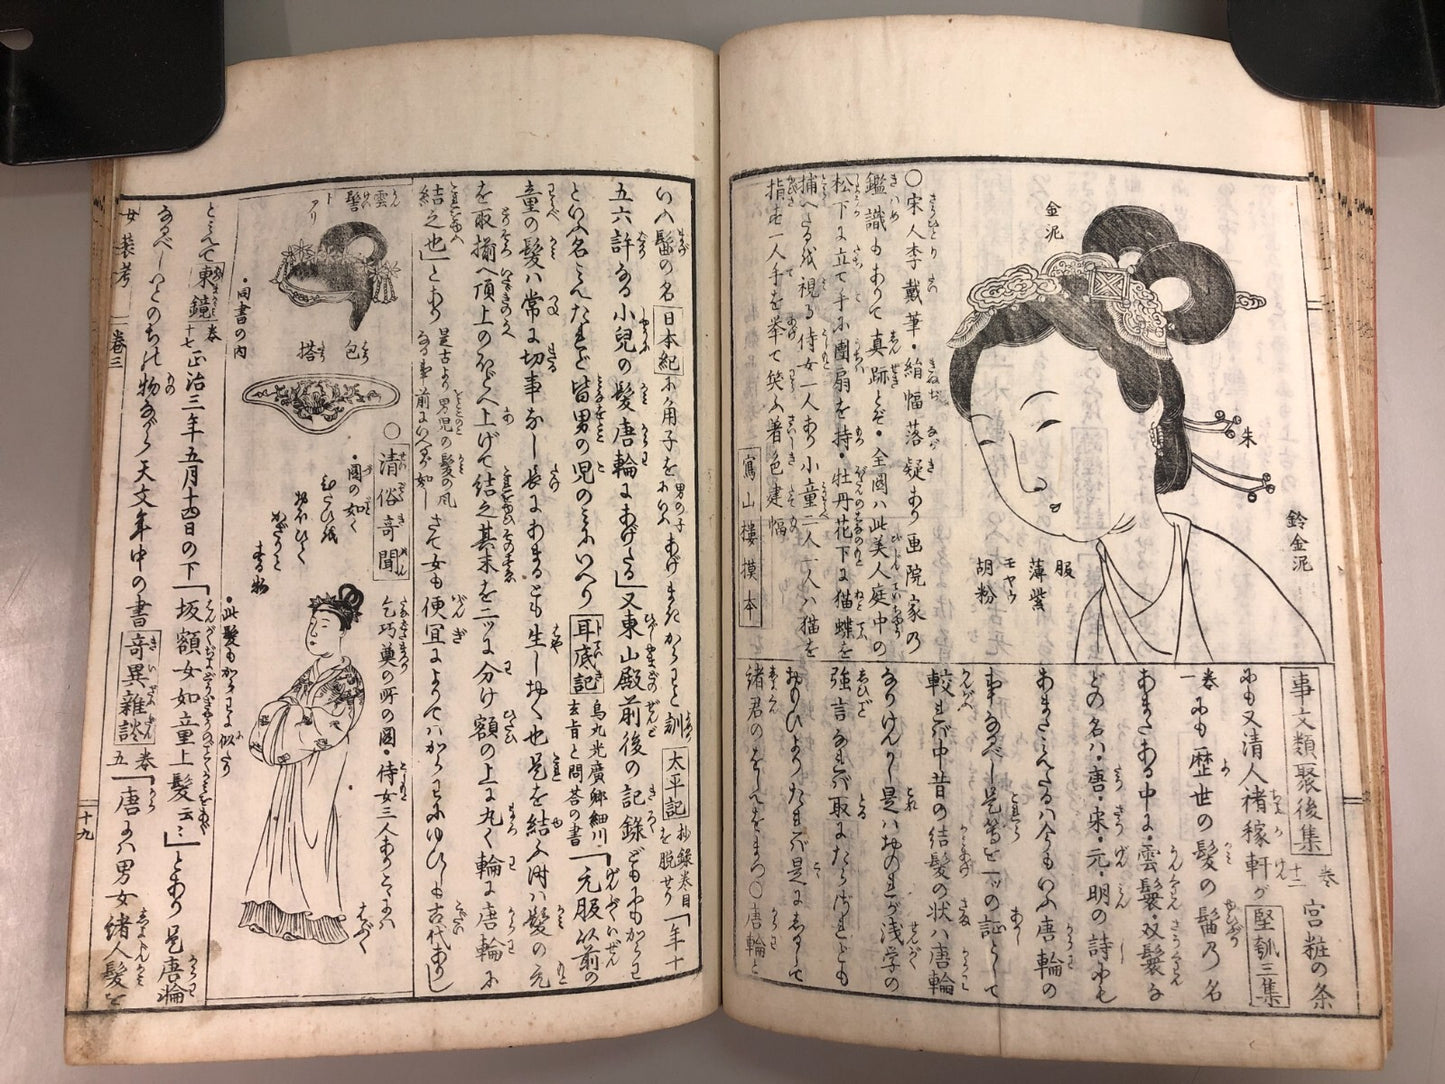 金泥
朱
鈴金泥
服
薄紫
モヤウ
胡粉
〇宋人李戴筆・絹幅落疑あり画院家乃
鑑識もありて真跡とぞ・全図ハ此美人庭中の
松下に立て手に團扇を持・牡丹花下に猫蝶を
捕へたるを視る侍女一人あり小童二人一人ハ猫を
指さし一人手を挙て笑ふ着色建幅
寫山樓摸本
事文類聚後集 巻十二 宮粧の条
にも又清人褚稼軒が堅瓠三集
巻一 にも歴世の髪の髷乃名
あまたある中に・雲鬟・双鬟な
どの名ハ・唐・宋・元・明の詩にも
あまたみえたるハ今もいふ唐輪の
事なるべし是等を一ッの証として
較れバ中昔の結髪の状ハ唐輪
なりけんかし是ハおのれが浅学の
強言なれバ取にたらざれども
おもひよりたれバ是にしるして
諸君のをしへをまつ〇唐輪と
いふ髷の名日本紀に角子を 男の子にいふ あげまきからわと訓 太平記 抄録巻目を脱せり 「年十
五六許なる小兒の髪唐輪にあげたる」又東山殿前後の記録どもにもからわ
といふ名みえたれど皆男の児のみにいへり 耳底記 烏丸光廣卿細川玄旨と問荅の書 「元服以前の
童の髪ハ常に切事なし長にあまるとも生しおく也是を結ふ時ハ髪の元
を取揃へ頂上のほどへ上げて結之其末を二ッに分け額の上に丸く輪に唐輪に
結之也」とあり 是古より男児の髪の風なる事前にいへるが如し さて女も便宜によりてハからわにゆひしも古代あり
雲髻
包
搭
・同書の内
〇清俗奇聞
乞巧奠の所の圖・侍女三人あり
・圖の如く
・此髪もからわに似たり
とみえて東鏡 巻十七 正治三年五月十四日の下「坂額女如童上髪云云」とあり是唐輪
なるべしいとのちの物ながら天文年中の書奇異雜談 巻五 「唐にハ男女緒人髪を
女装考
巻三
十九